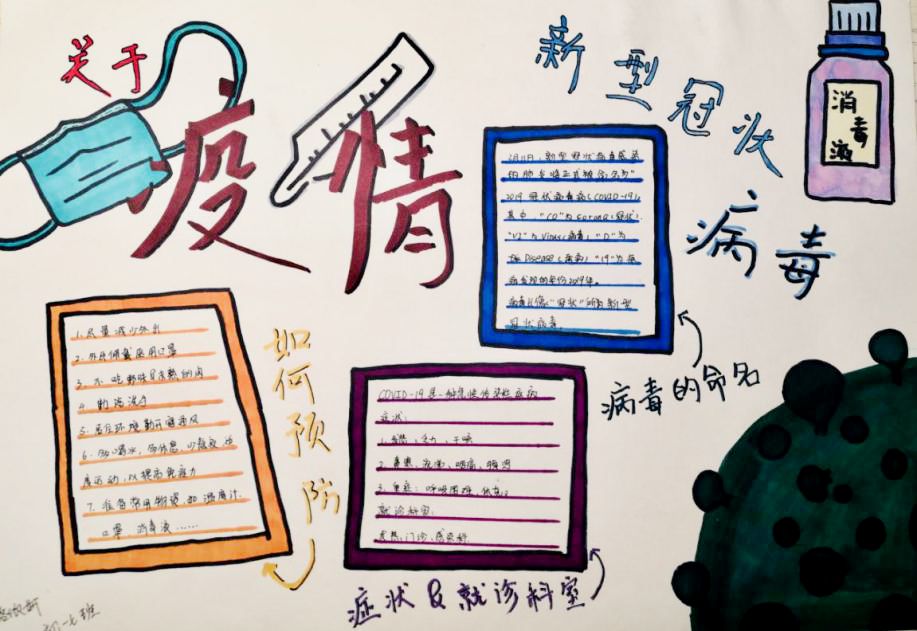 关于
疫情
新型冠状
病毒
消
毒
液
2月11日，新型冠状病毒感染
的肺炎疫情正式被命名为"
2019冠状病毒病(COVID-19).
其中，"CO"为corona(冠状).
"VI"为Virus(病毒)，"D"为
Disease(疾病)，"19"为疾
病发现的年份2019年。
冠状病毒。
病毒的命名
1.尽量减少外出
2.外出佩戴医用口罩
3.不吃野味及未熟的肉
4.勤洗洗手
5.居住环境勤开窗通风
6.多喝水，多休息，少熬夜，适
度运动，以提高免疫力
7.准备常用物资如温度计.
口罩，消毒液……
如何预防
COVID-19是一种急性传染性疾病
症状：
1.发热，乏力，干咳
2.鼻塞，流涕，咽痛，腹泻
3.重症：呼吸困难，
就诊科室：
发热门诊，感染科
症状&就诊科室